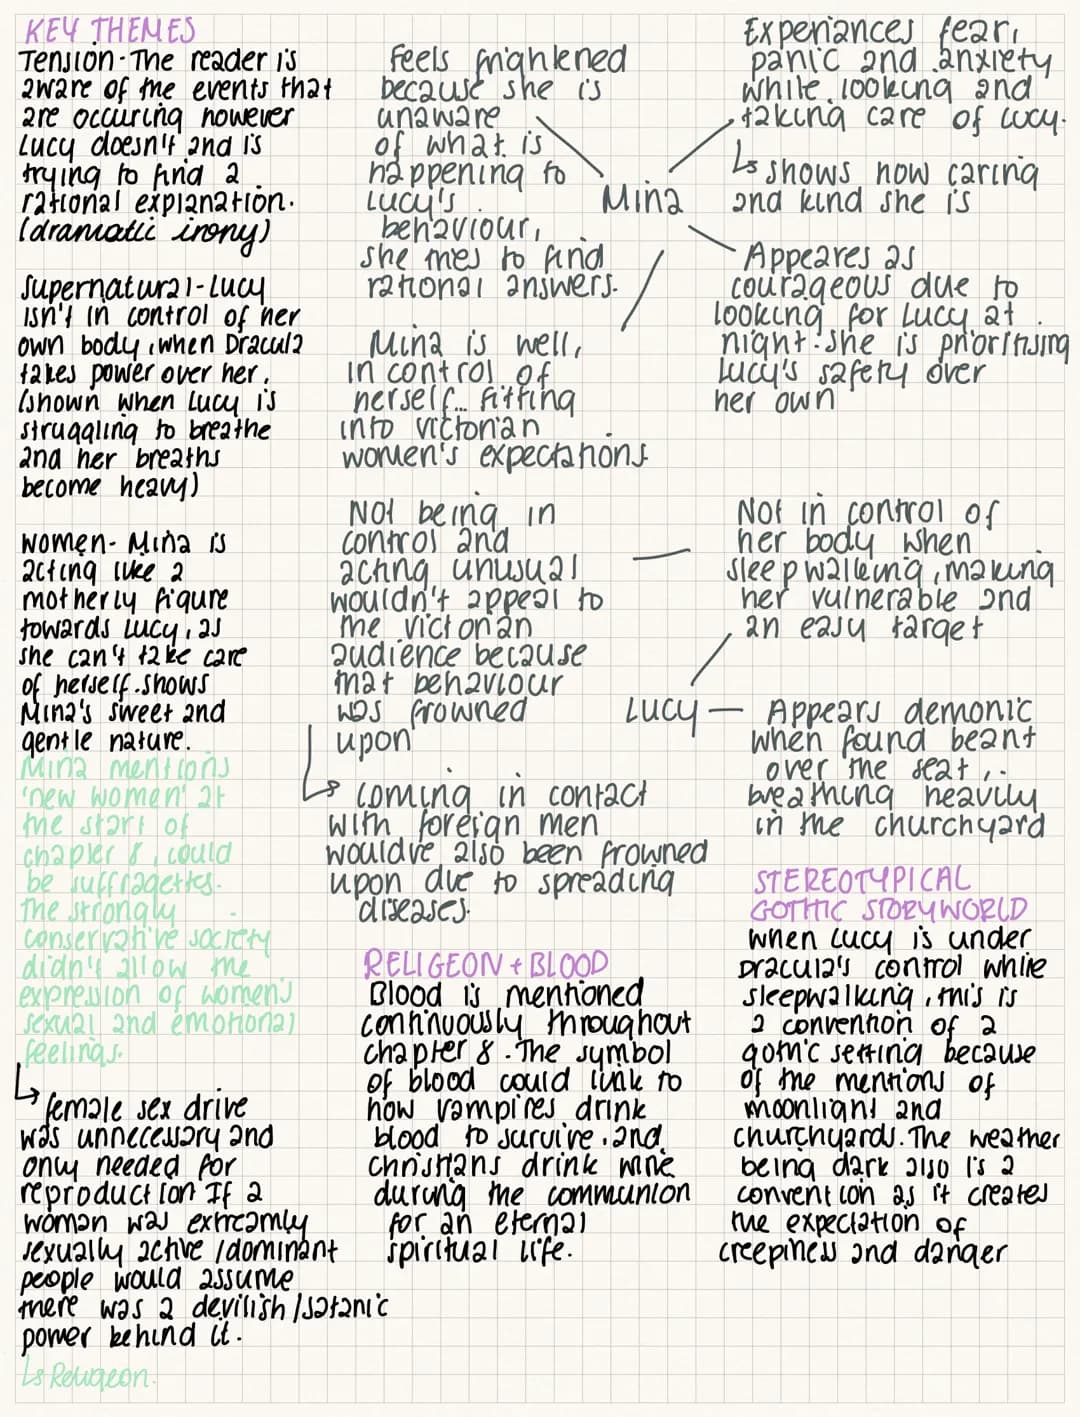 KEY THEMES
Tension-The reader is
aware of the events that
are occuring however
Lucy doesn't and is
trying to find a
rational explanation.
(dramatic irony)
Supernatural-Lucy
isn't in control of her
own body, when Dracula
takes power over her,
(shown when Lucy is
struggling to breathe
and her breaths
become heavy)
women- Mina is
acting like a
motherly figure
towards Lucy, as
she can't take care
of herself. shows
Mina's sweet and
gentle nature.
Mina mentions
'new women' at
the start of
chapter 8, could
be suffragettes.
The strongly
conservative society
didn't allow the
expression of women's
sexual and emotional
feelings.
↳ female sex drive
was unnecessary and
only needed for
reproduction If a
woman was extreamly
sexually active / dominant
people would assume
there was a devilish / satanic
power behind it.
↳ Religeon.
Feels frightened
because she is
unaware
of what is
happening to
Lucy's
behaviour,
she tries to find
rational answers.
Mina
Experiances fear,
panic and anxiety
while looking and
taking care of Lucy.
↳ shows how caring
and kind she is
Appeares as
courageous due to
looking for Lucy at
night. she is prioritising
Lucy's safety over
her own
Mina is well,
in control of
herself... fitting
into victorian
women's expectations
Not being in
control and
acting unusual
wouldn't appeal to
the victorian
audience because
that behaviour
was frowned
upon
↳ coming in contact
with foreign men
wouldve also been frowned
upon due to spreading
diseases.
Not in control of
her body when
sleepwalking, making
her vulnerable and
an easy target
Lucy
Appears demonic
when found beant
over the seat,
breathing heavily
in the churchyard
RELIGEON + BLOOD
Blood is mentioned
continuously throughout
chapter 8. The symbol
of blood could link to
how vampires drink
blood to survive, and
christians drink wine
during the communion
for an eternal
spiritual life.
STEREOTYPICAL
GOTHIC STORYWORLD
when Lucy is under
Dracula's control while
sleepwalking, this is
a convention of a
gothic setting because
of the mentions of
moonlight and
churchyards. The weather
being dark also is a
convention as it creates
the expectation of
creepiness and danger